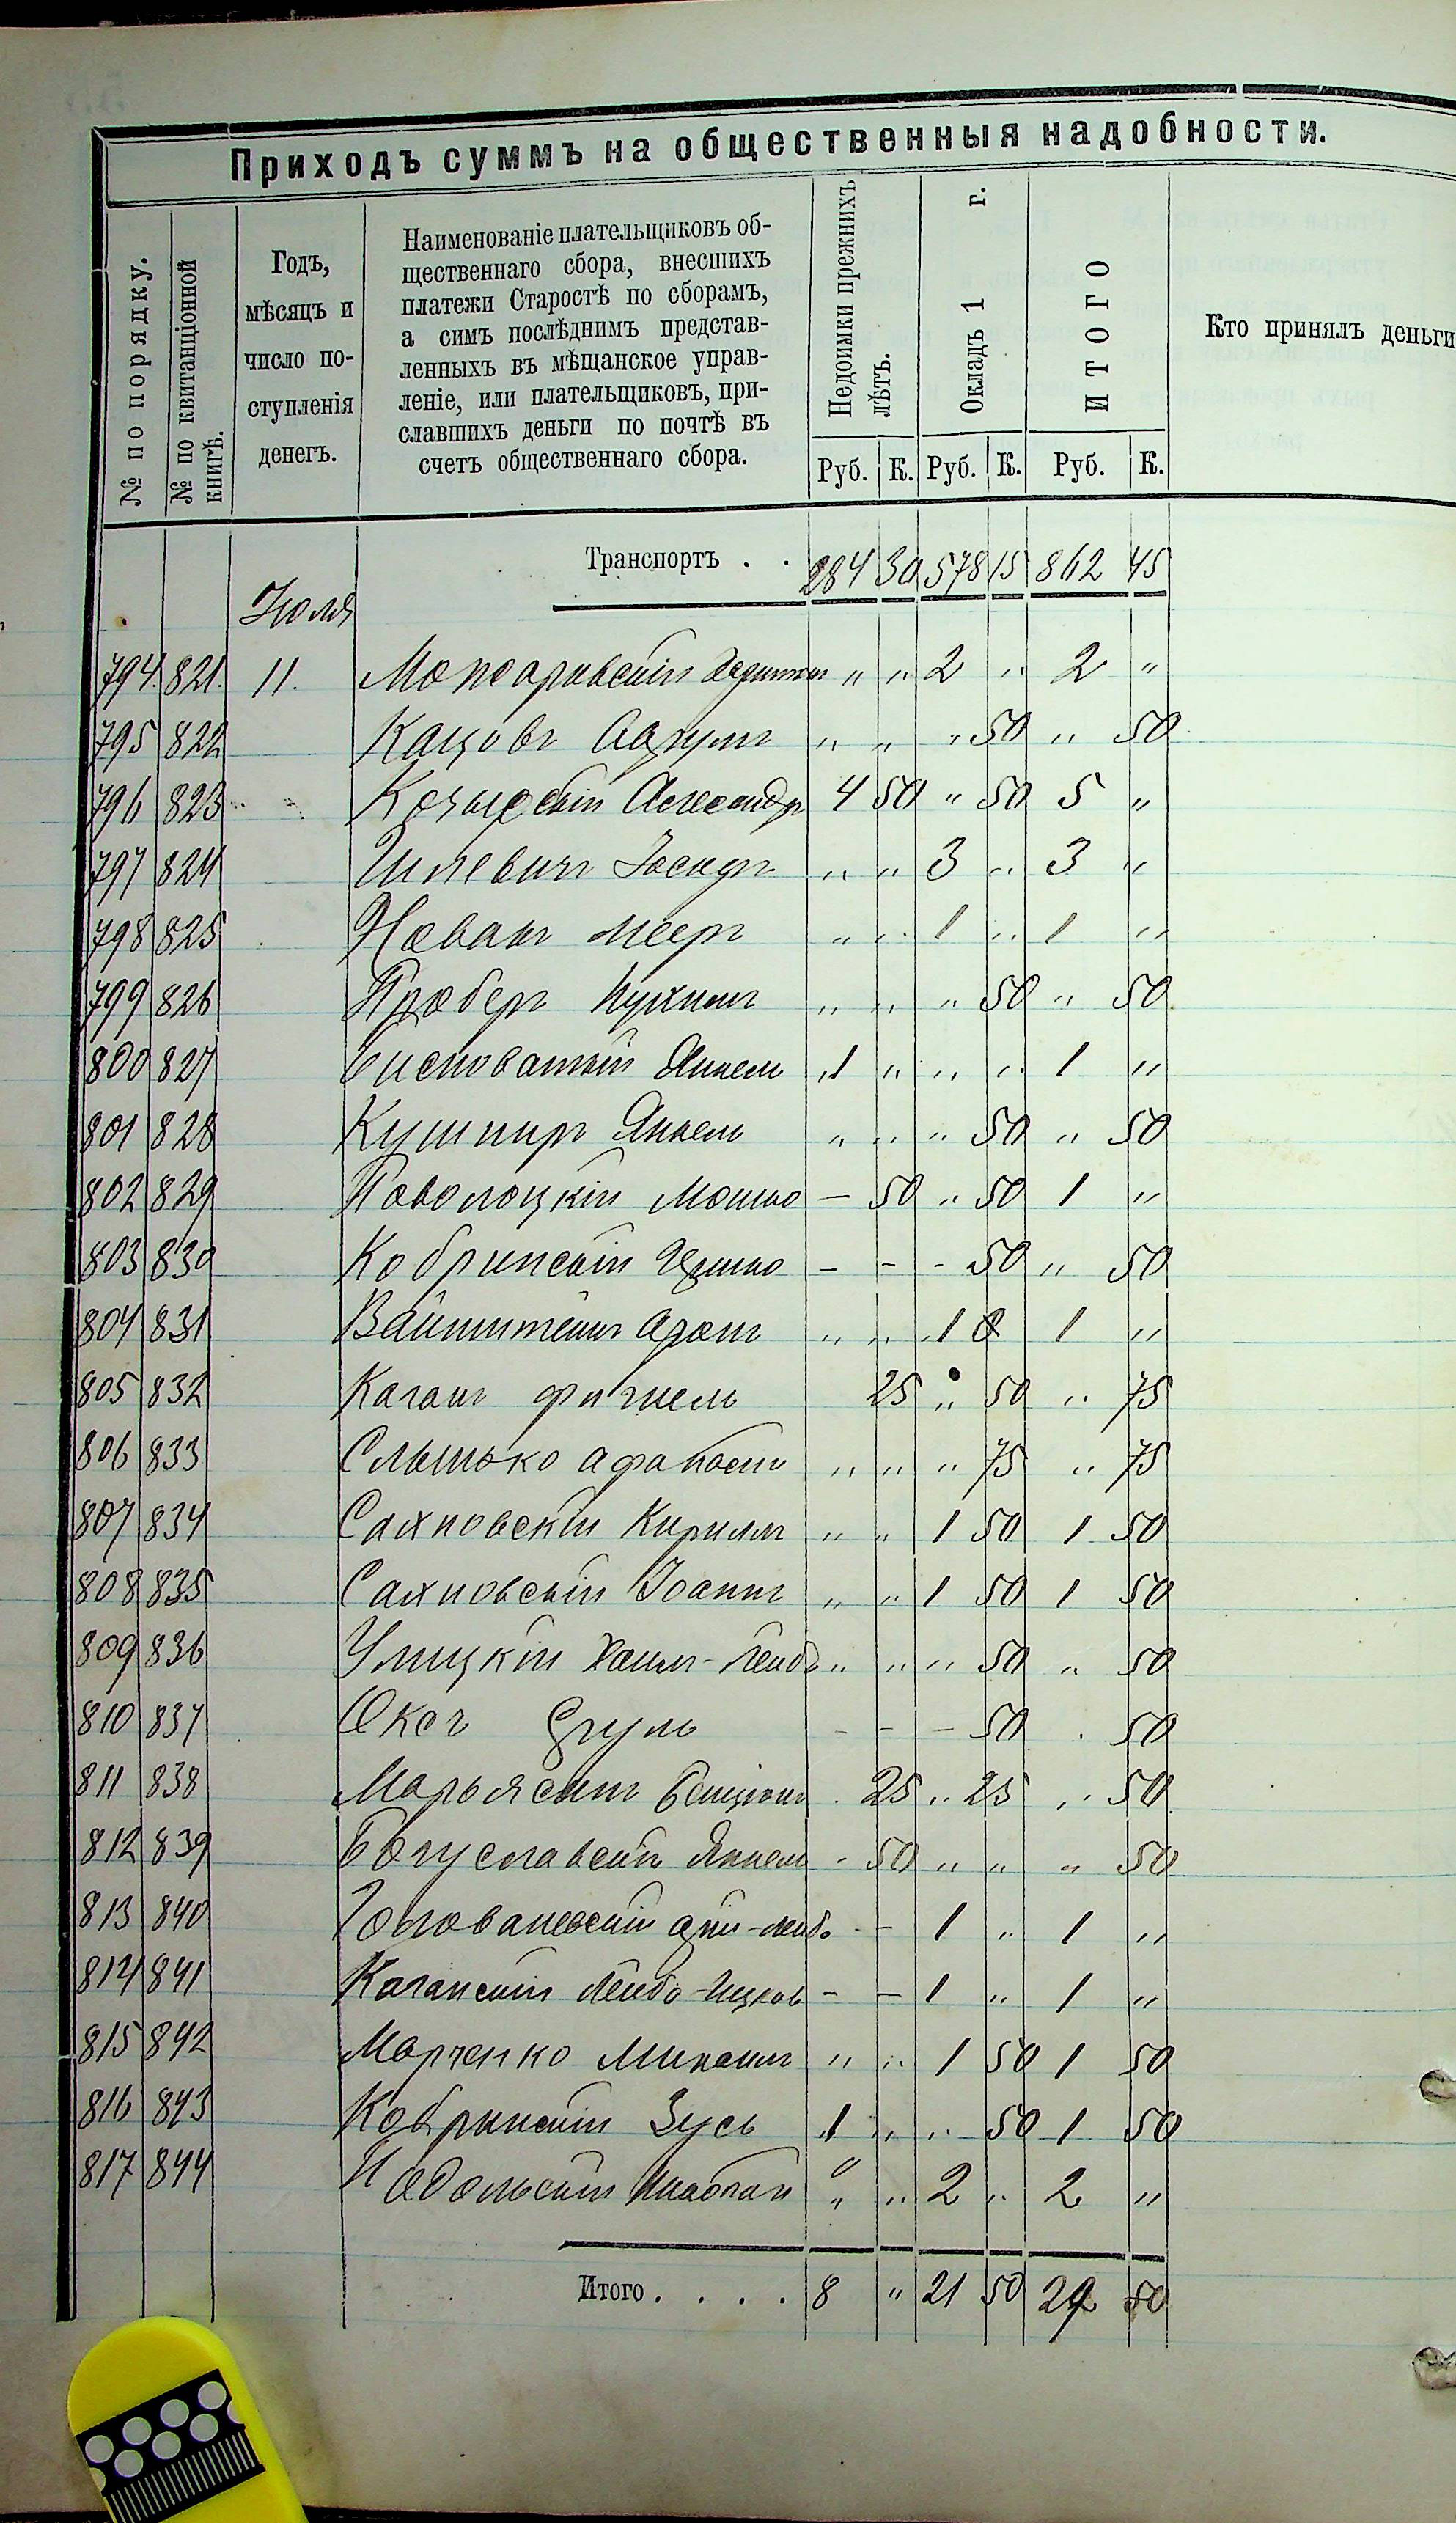 Приходъ суммъ на общественныя надобности.
№ по порядку.
№ по квитанціонной
книгѣ.
Годъ,
мѣсяцъ и
число по-
ступленія
денегъ.
Наименованіе плательщиковъ об-
щественнаго сбора, внесшихъ
платежи Старостѣ по сборамъ,
а симъ послѣднимъ представ-
ленныхъ въ мѣщанское управ-
леніе, или плательщиковъ, при-
славшихъ деньги по почтѣ въ
счетъ общественнаго сбора.
Недоимки прежнихъ
лѣтъ.
Окладъ 1 г.
ИТОГО
Кто принялъ деньги
Руб. К. Руб. К. Руб. К.
Транспортъ . . 284 30 578 15 862 45
Іюля
794. 821. 11. " " 2 " 2 "
795 822 Кацовъ " " " 50 " 50
796 823 Александръ 4 50 " 50 5 "
797 824 Шлевичъ Іосифъ " " 3 " 3 "
798 825 Мееръ " " 1 " 1 "
799 826 " " " 50 " 50
800 827 Бисноватый Янкель 1 " " " 1 "
801 828 Кушниръ Янкель " " " 50 " 50
802 829 Поволоцкій Мошко — 50 " 50 1 "
803 830 Кобринскій - - - 50 " 50
804 831 Вайнштейнъ Аронъ " " 1 0 1 "
805 832 Каганъ Фишель 25 " 50 " 75
806 833 " " " 75 " 75
807 834 Сахновскій Кириллъ " " 1 50 1 50
808 835 Сахновскій Іоаннъ " " 1 50 1 50
809 836 Улицкій Хаим-Лейб " " " 50 " 50
810 837 Сруль - - - 50 . 50
811 838 Марьясинъ Бенціонъ . 25 " 25 " 50
812 839 Богуславскій Янкель - 50 " " " 50
813 840 - 1 " 1 "
814 841 Каганскій Лейбо-Ицков - - 1 " 1 "
815 842 Марченко Михаилъ " " 1 50 1 50
816 843 Кобринскій Зусь 1 " " 50 1 50
817 844 Подольскій " " 2 " 2 "
Итого . . . . 8 " 21 50 29 50